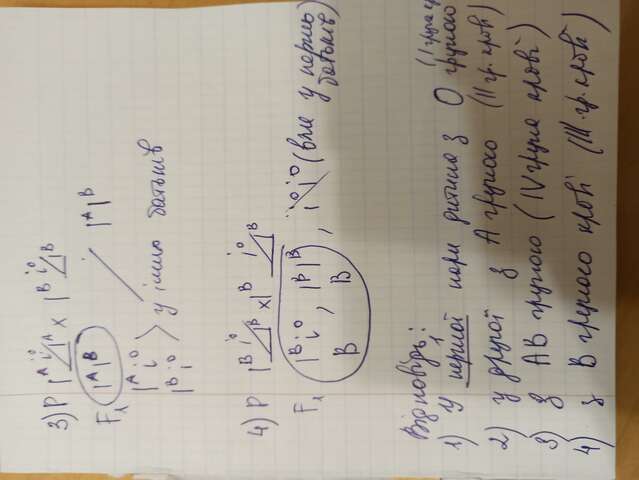 3) P I^A i^o I^A x I^B i^o I^B
F₁ I^A I^B I^A I^B
I^A i^o
I^B i^o > у інших батьків
4) P I^B i^o I^B x I^B i^o I^B
F₁ I^B i^o, I^B I^B, i^o i^o (вже у перших батьків)
B B
Відповідь:
1) у першої пари дитина з O групою (I група
2) у другої з A групою (II гр. крові)
3) з AB групою (IV група крові)
4) з B групою крові (III гр. крові)